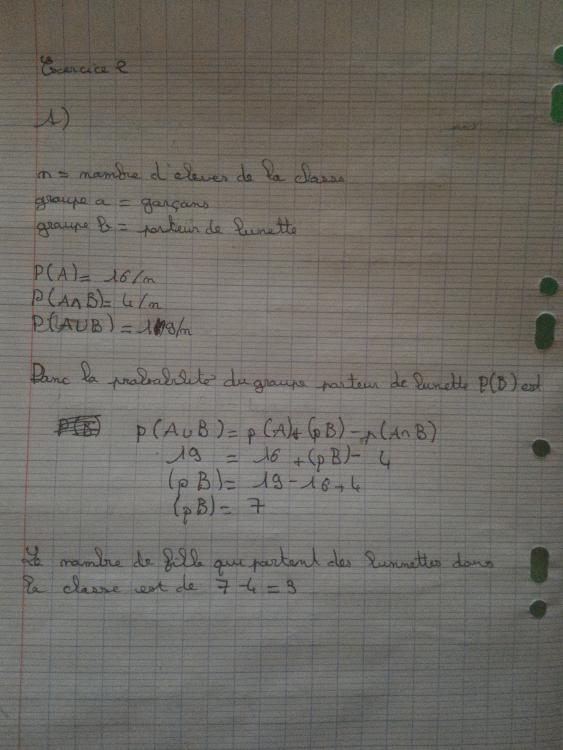 Exercice 2
1)
n = nombre d'eleves de la classe
groupe a = garçons
groupe b = porteur de lunette
P(A) = 16/n
P(A∩B) = 4/n
P(A∪B) = 19/n
Donc la probabilité du groupe porteur de lunette P(B) est
p(A∪B) = p(A)+(pB)-p(A∩B)
19 = 16 +(pB)- 4
(pB) = 19-16+4
(pB) = 7
Le nombre de fille que portent des lunnettes dans
la classe est de 7-4=3